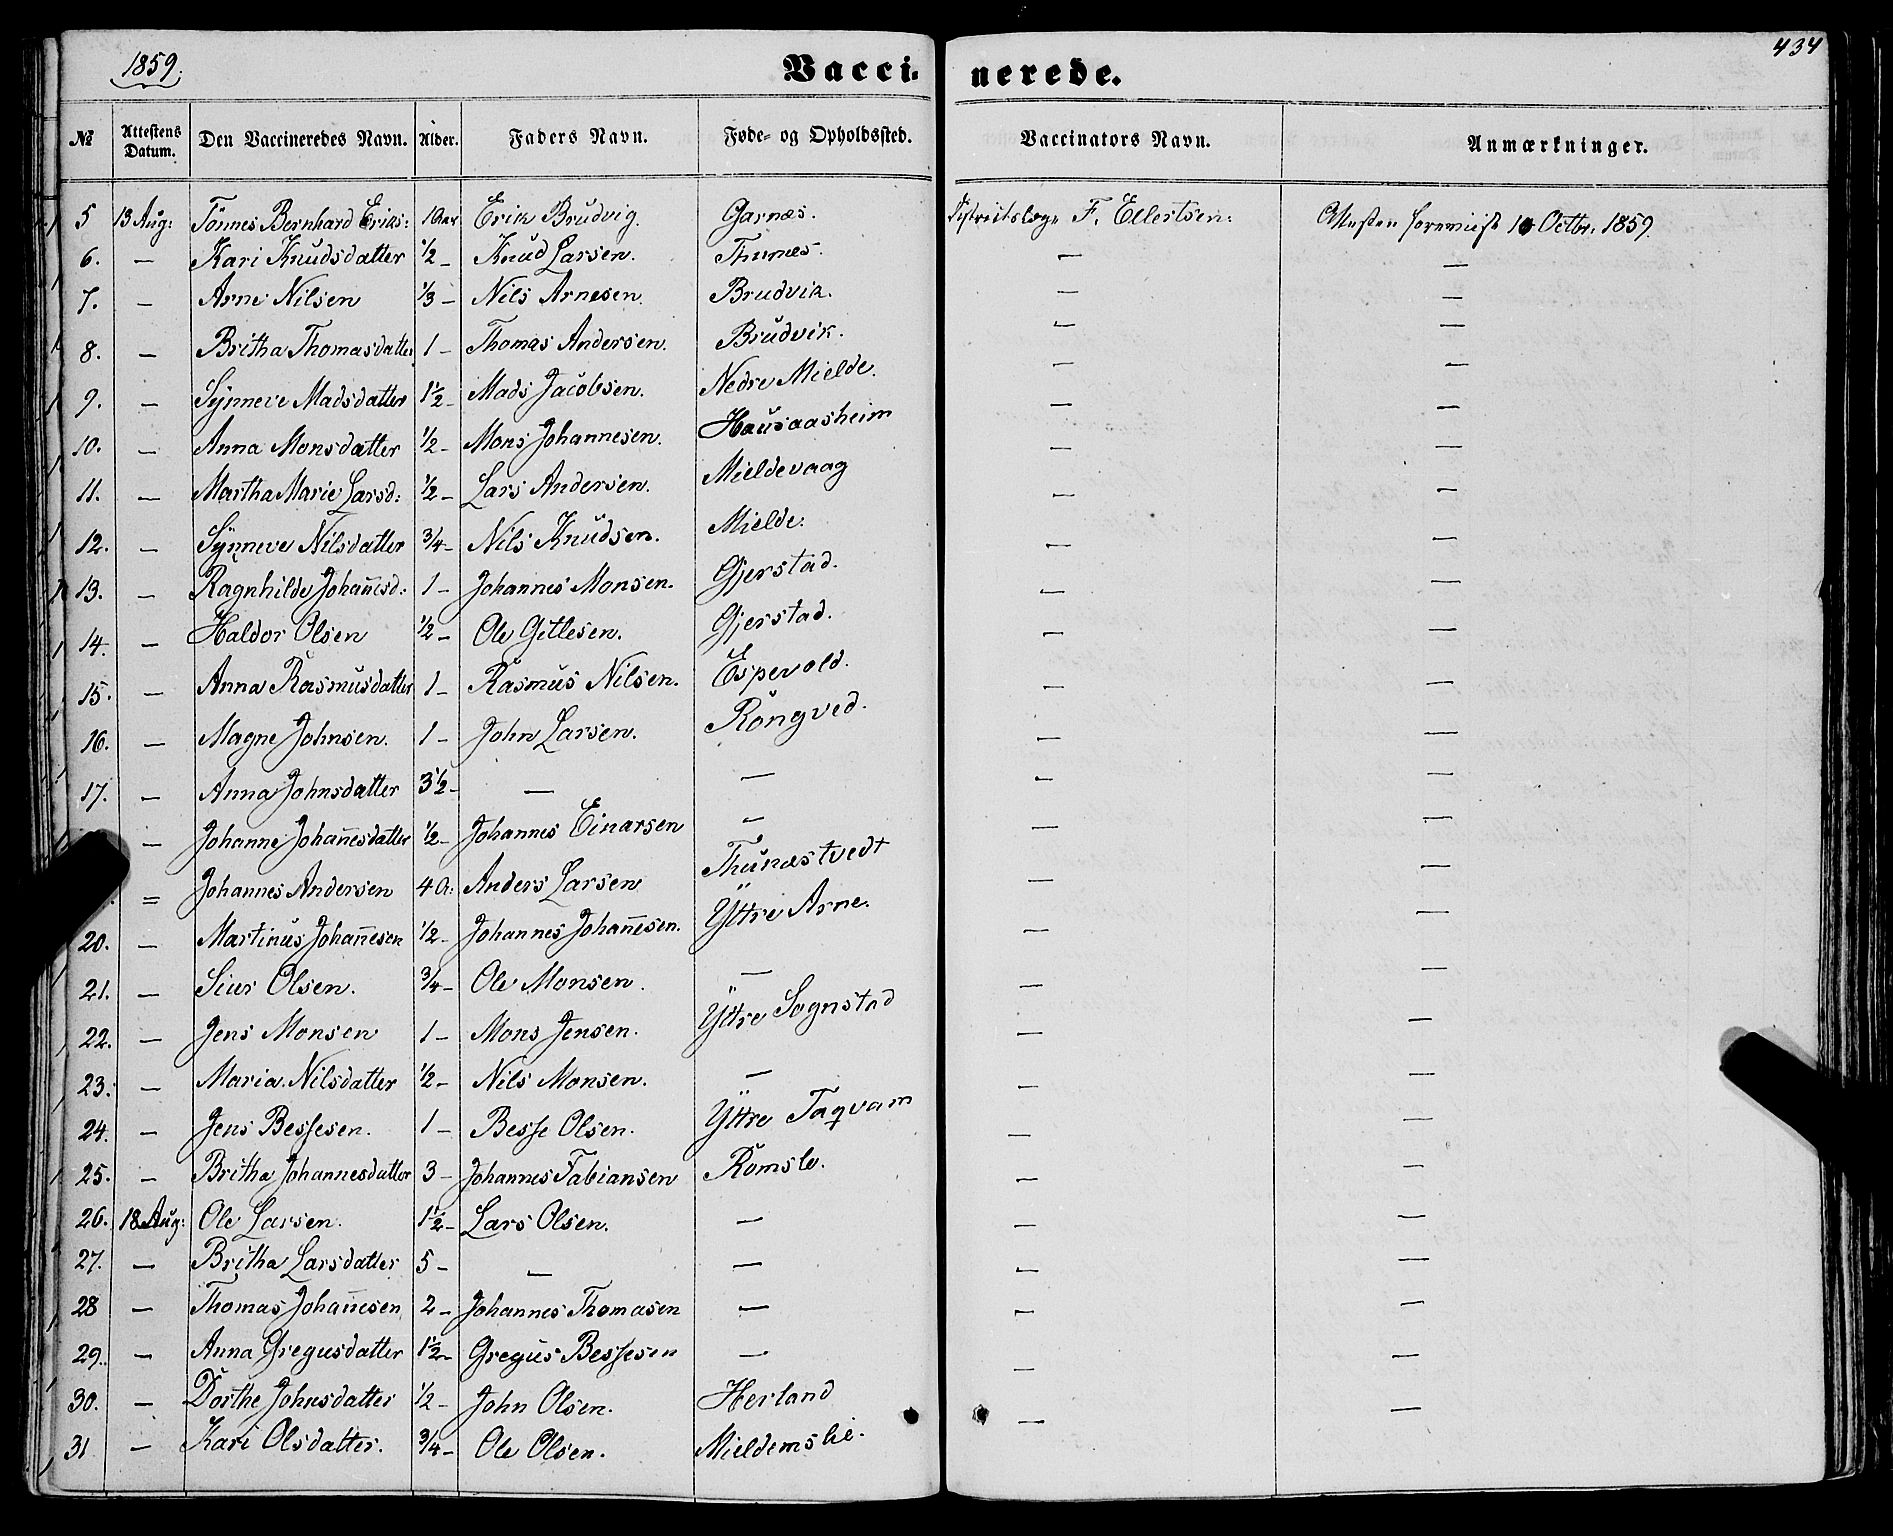 1859.
434
Vaccinerede.
№ Attestens Datum. Den Vaccineredes Navn. Alder. Faders Navn. Føde- og Opholdssted. Vaccinators Navn. Anmærkninger.
5 13 Aug: Tönnes Bernhard Eriks: Erik Brudvig. Garnæs. F. Ellertsen: Attesten 10 Octbr. 1859.
6. — Kari Knudsdatter ½ — Knud Larsen. Thunæs. — —
7. — Arne Nilsen ⅓ — Nils Arnesen. Brudvik. — —
8. — Britha Thomasdatter 1 — Thomas Andersen. Brudvik. — —
9. — Synneve Madsdatter 1½ — Mads Jacobsen. Nedre Mielde. — —
10. — Anna Monsdatter ½ — Mons Johannesen. Hausaasheim — —
11. — Martha Marie Larsd: ½ — Lars Andersen. Mieldevaag — —
12. — Synneve Nilsdatter ¾ — Nils Knudsen. Mielde. — —
13. — Ragnhilde Johan̄esd: 1 — Johannes Monsen. Gjerstad. — —
14. — Haldor Olsen ½ — Ole Gitlesen. Gjerstad. — —
15. — Anna Rasmusdatter 1 — Rasmus Nilsen. Espevold. — —
16. — Magne Johnsen. 1 — John Larsen. Röngved. — —
17. — Anna Johnsdatter 3½ — — — — —
— Johanne Johan̄esdatter ½ — Johannes Einarsen — — —
= Johannes Andersen 4 A: Anders Larsen Thunæstvedt — —
20. — Martinus Johan̄esen ½ — Johannes Johan̄esen. Yttre Arne. — —
21. — Siur Olsen. ¾ — Ole Monsen. — — —
22. — Jens Monsen 1 — Mons Jensen. Yttre Sognstad — —
23. — Maria Nilsdatter ½ — Nils Monsen. — — —
24. — Jens Bessesen. 1 — Besse Olsen. Yttre Taqvam — —
25. — Britha Johannesdatter 3 — Johannes Fabiansen Romslo. — —
26. 18 Aug: Ole Larsen. 1½ — Lars Olsen. — — —
27. — Britha Larsdatter 5 — — — — —
28 — Thomas Johan̄esen 2 — Johannes Thomasen — — —
29. — Anna Gregusdatter 1½ — Gregus Bessesen — — —
30. — Dorthe Johnsdatter ½ — John Olsen. Herland — —
31 — Kari Olsdatter. ¾ — Ole Olsen. Mieldemslie.